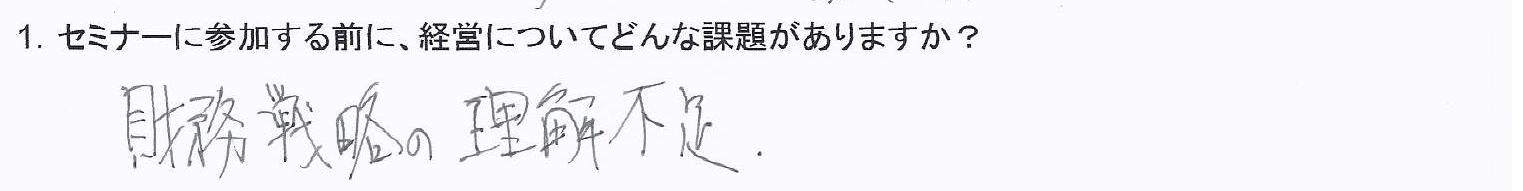 1. セミナーに参加する前に、経営についてどんな課題がありますか？
財務戦略の理解不足.